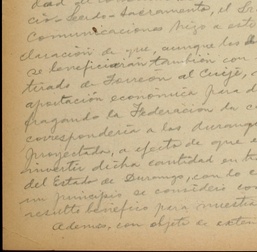 ción Leedo Sacramento, el Sr.
Comunicaciones hizo a este
claración de que, aunque los
se beneficiarán también con
tirado de Torreón al Cuije,
aportación económica para
fragando la Federación la
correspondería a los durang
proyectada, a efecto de que
invertir dicha cantidad en
del Estado de Durango, con lo
un principio se consideró con
resulta benéfico para nuestra
Además, con objeto de